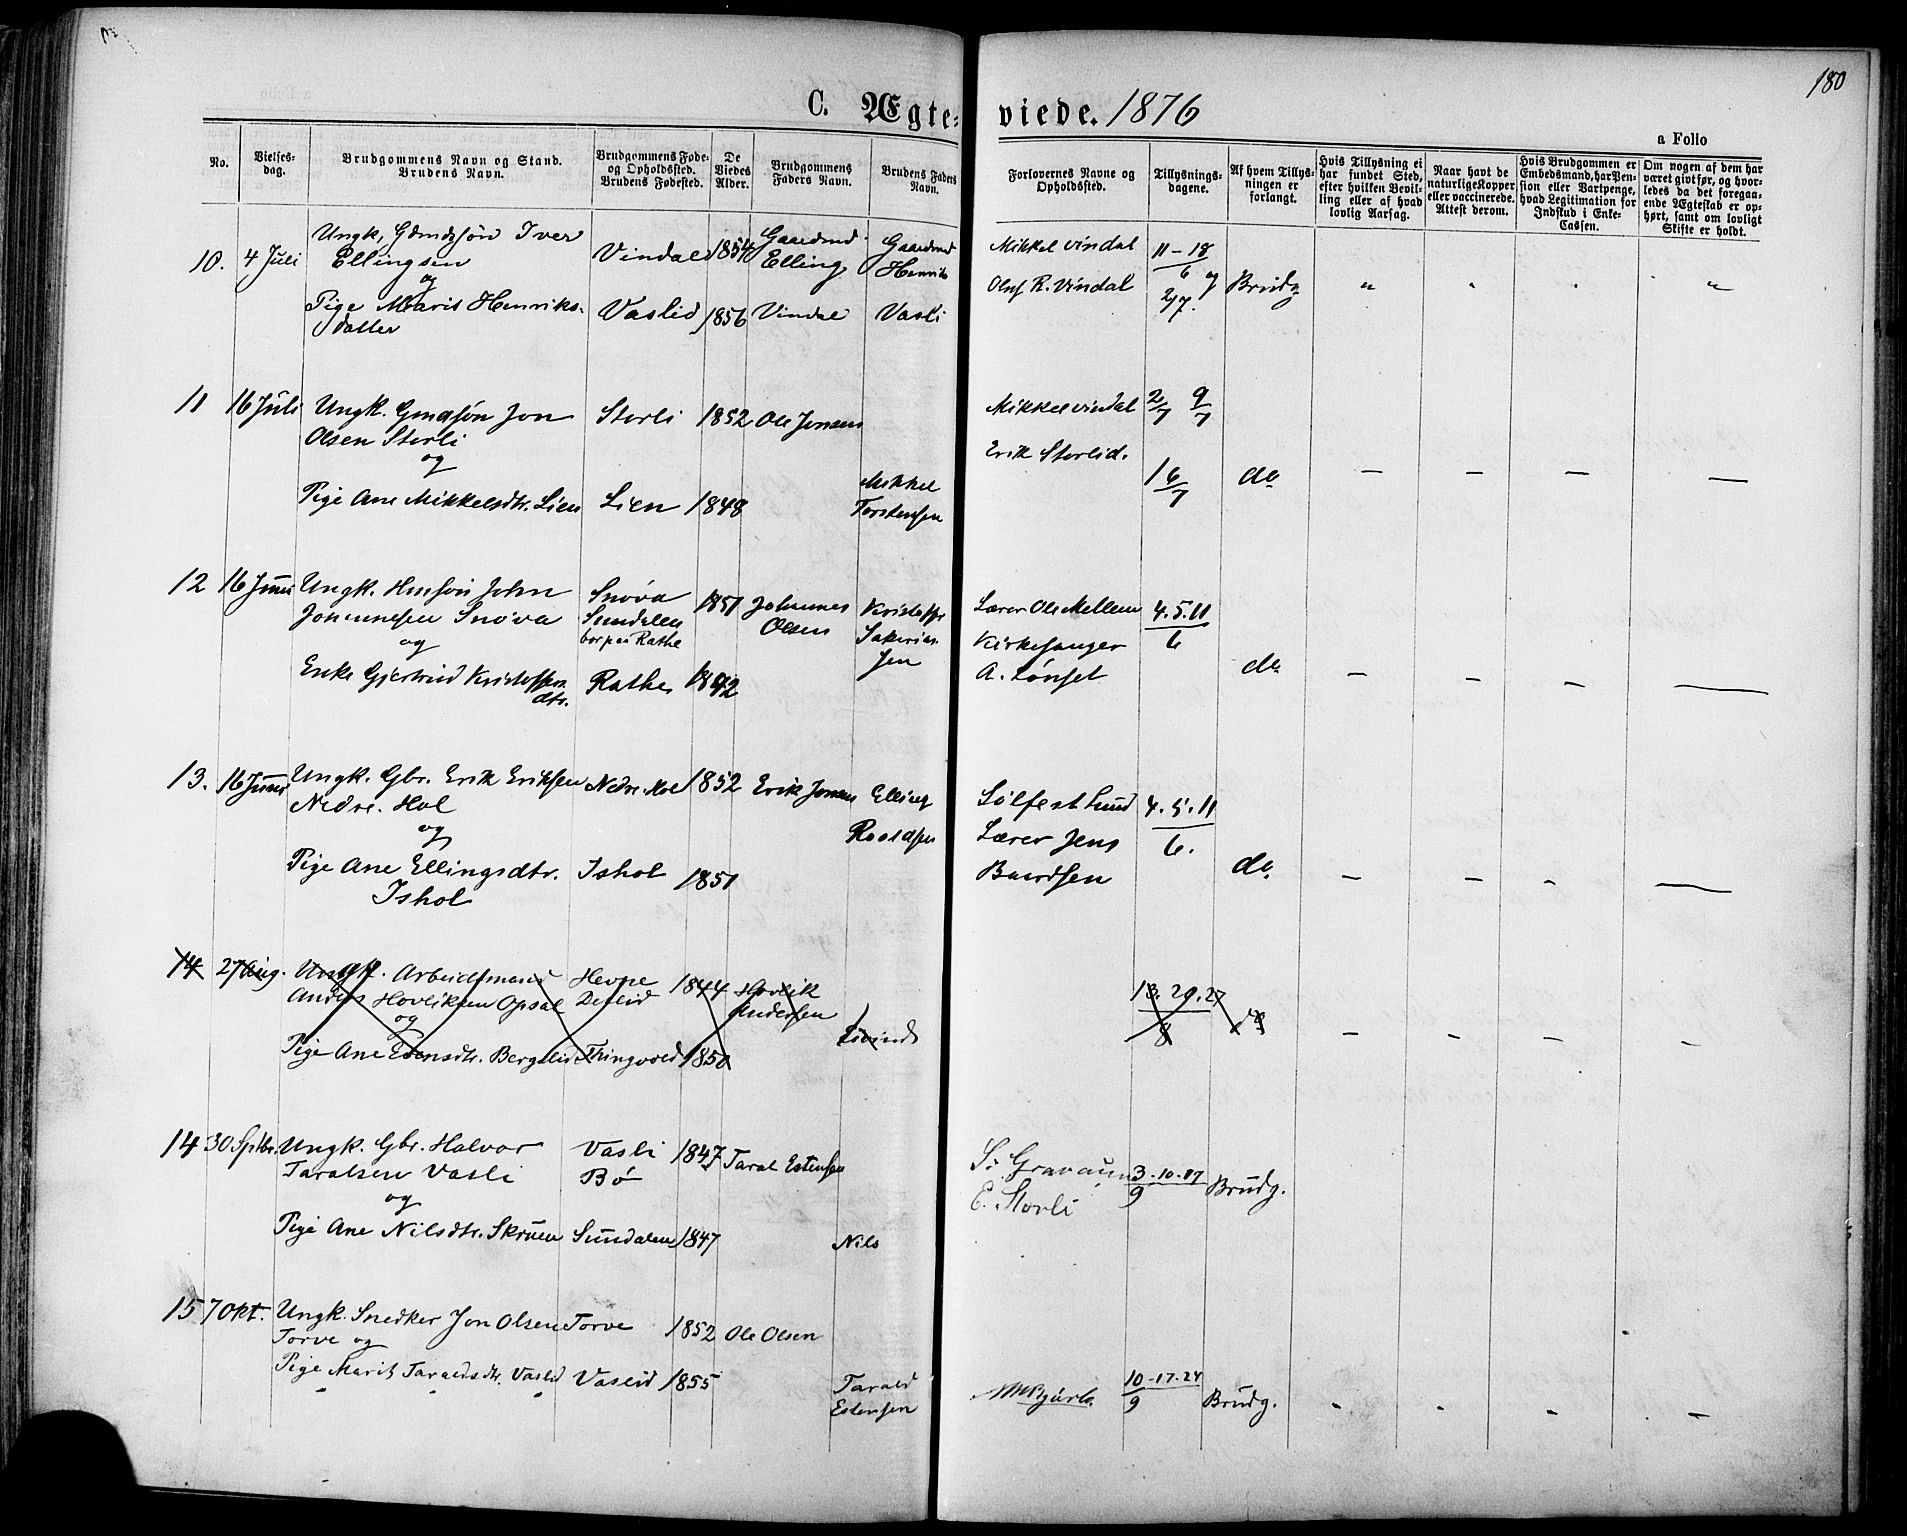 180
C. Ægte-viede. 1876
a Folio
No.
Vielses-
dag.
Brudgommens Navn og Stand.
Brudens Navn.
Brudgommens Føde-
og Opholdssted.
Brudens Fødested.
De
Viedes
Alder.
Brudgommens
Faders Navn.
Brudens Faders
Navn.
Forlovernes Navne og
Opholdssted.
Tillysnings-
dagene.
Af hvem Tillys-
ningen er
forlangt.
Hvis Tillysning ei
har fundet Sted,
efter hvilken Bevil-
ling eller af hvad
lovlig Aarsag.
Naar havt de
naturlige Kopper
eller vaccinerede.
Attest derom.
Hvis Brudgommen er
Embedsmand, har Pen-
sion eller Vartpenge,
hvad Legitimation for
Indskud i Enke-
Cassen.
Om nogen af dem har
været gift før, og hvor-
ledes da det foregaa-
ende Ægteskab er op-
hørt, samt om lovligt
Skifte er holdt.
10. 4 Juli
Ungk. Gdmdssön Iver
Ellingsen
og
Pige Marit Henriks-
datter
Vindal
Vaslid
1854
1856
Gaardmd.
Elling
Vindal
Gaardmd
Henrik
Vasli
Mikkel Vindal
Oluf R. Vindal
11-18
6 og
2/7.
Brudg
11 16 Juli
Ungk. Gmdsøn Jon
Olsen Storli
og
Pige Ane Mikkelsdtr. Lien
Storli
Lien
1852
1848
Ole Jonsen
Mikkel
Torstensen
Mikkel Vindal
Erik Storlid.
2/7 9/7
16/7
do
12 16 Juni
Ungk. Hmsøn John
Johannesen Snøva
og
Enke Gjertrud Kristoffers
dtr.
Snøva
Sundalen
bor paa Rathe
Rathe
1851
1842
Johannes
Olsen
Kristoffer
Sakarias
sen
Lærer Ole Mellem
Kirkesanger
A. Lønset
4.5.11
6
do
13. 16 Juni
Ungk. Gbr. Erik Eriksen
Nedre. Hol
og
Pige Ane Ellingsdtr.
Ishol
Nedre. Hol
Ishol
1852
1851
Erik Jonsen
Elling
Roaldsen
Sølfest Lund
Lærer Jens
Baardsen
4.5.11
6.
do.
14 27 Aug.
Ungk. Arbeidsmand
Anders Hovliksen Opsal
og
Pige Ane Evensdtr. Bergslid
Hevne
Detlid
Thingvold
1844
1850
Hovlik
Andersen
Eivind
13. 20. 27
8
do
14 30 Sptbr.
Ungk. Gbr. Halvor
Taralsen Vasli
og
Pige Ane Nilsdtr. Skruen
Vasli
Bø
Sundalen
1847
1847
Taral Estensen
Nils
S. Gravaune
E. Storli
3-10-17
9
Brudg.
15 7 Okt.
Ungk. Snedker Jon Olsen
Torve og
Pige Marit Taraldsdtr. Vaslid
Torve
Vaslid
1852
1855
Ole Olsen
Tarald
Estensen
10-17-24
9
Brudg.